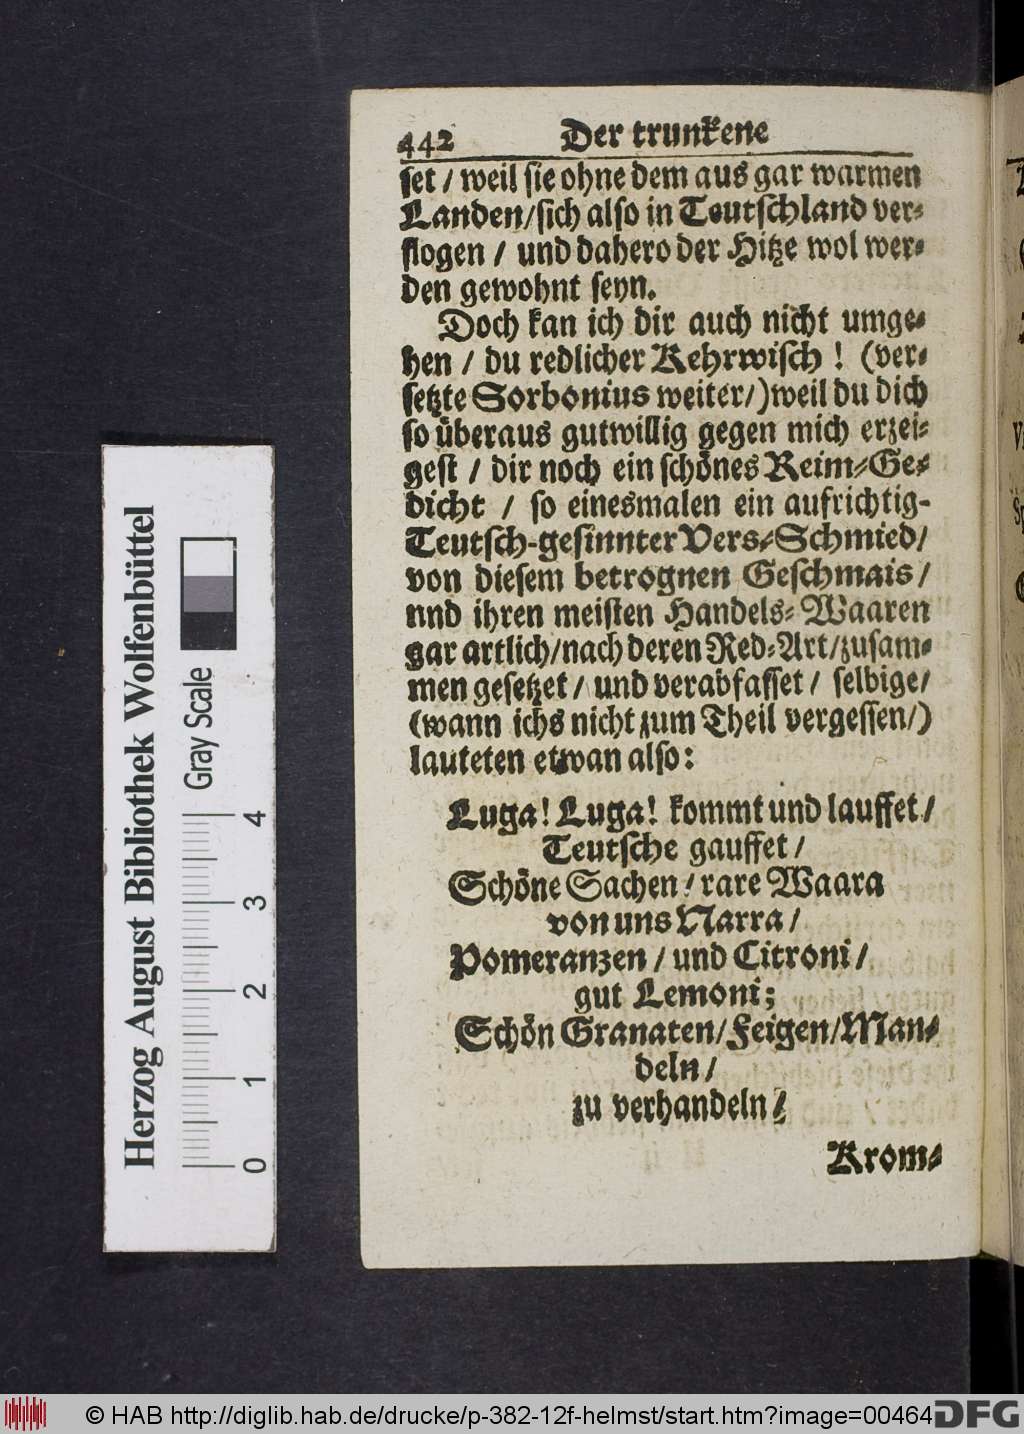 442 Der trunkene
set / weil sie ohne dem aus gar warmen
Landen/sich also in Teutschland ver⸗
flogen / und dahero der Hitze wol wer⸗
den gewohnt seyn.
Doch kan ich dir auch nicht umge⸗
hen / du redlicher Kehrwisch ! (ver⸗
setzte Sorbonius weiter/)weil du dich
so überaus gutwillig gegen mich erzei⸗
gest / dir noch ein schönes Reim⸗Ge⸗
dicht / so einesmalen ein aufrichtig-
Teutsch-gesinnter Vers⸗Schmied/
von diesem betrognen Geschmais /
nnd ihren meisten Handels⸗Waaren
gar artlich/nach deren Red⸗Art/zusam⸗
men gesetzet / und verabfasset / selbige/
(wann ichs nicht zum Theil vergessen/)
lauteten etwan also:
Luga! Luga! kommt und lauffet /
Teutsche gauffet /
Schöne Sachen / rare Waara
von uns Narra /
Pomeranzen / und Citroni /
gut Lemoni;
Schön Granaten/Feigen/Man⸗
deln /
zu verhandeln /
Krom⸗
Herzog August Bibliothek Wolfenbüttel
Gray Scale
0 1 2 3 4
© HAB http://diglib.hab.de/drucke/p-382-12f-helmst/start.htm?image=00464
DFG